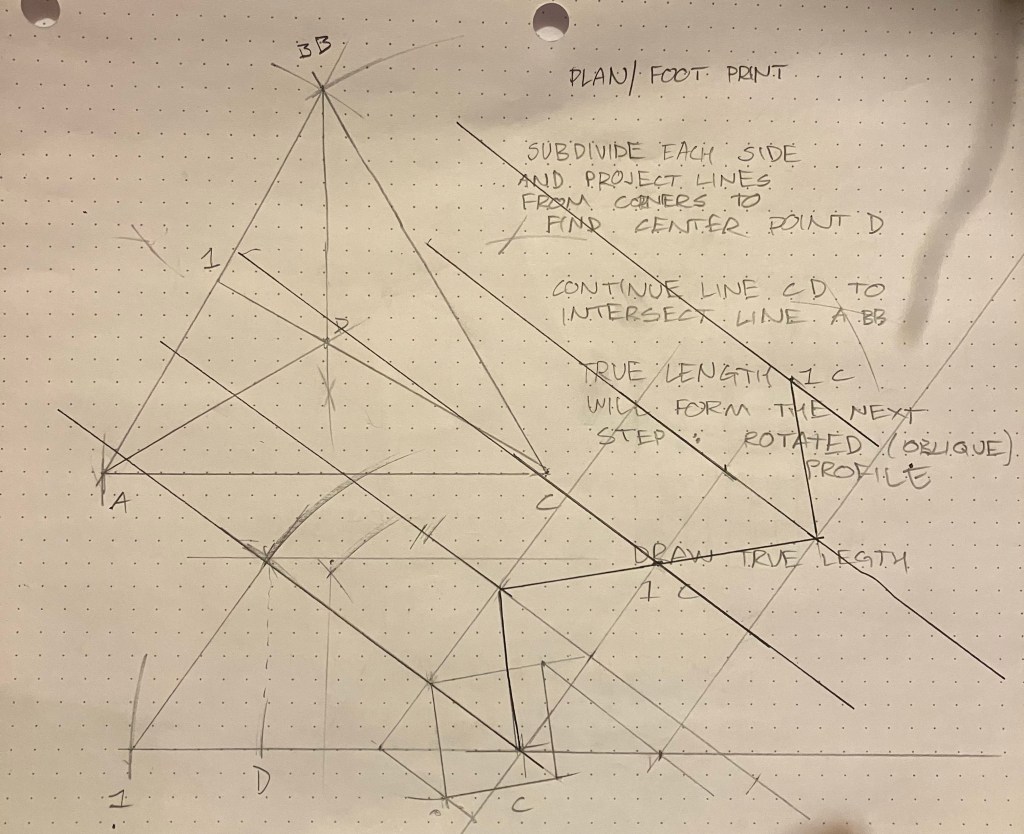 BB
PLAN/ FOOT PRINT
SUBDIVIDE EACH SIDE
AND PROJECT LINES
FROM CORNERS TO
FIND CENTER POINT D
1
CONTINUE LINE CD TO
INTERSECT LINE A BB
D
TRUE LENGTH 1 C
WILL FORM THE NEXT
STEP: ROTATED (OBLIQUE)
PROFILE
A
C
DRAW TRUE LEGTH
1 C
1
D
C